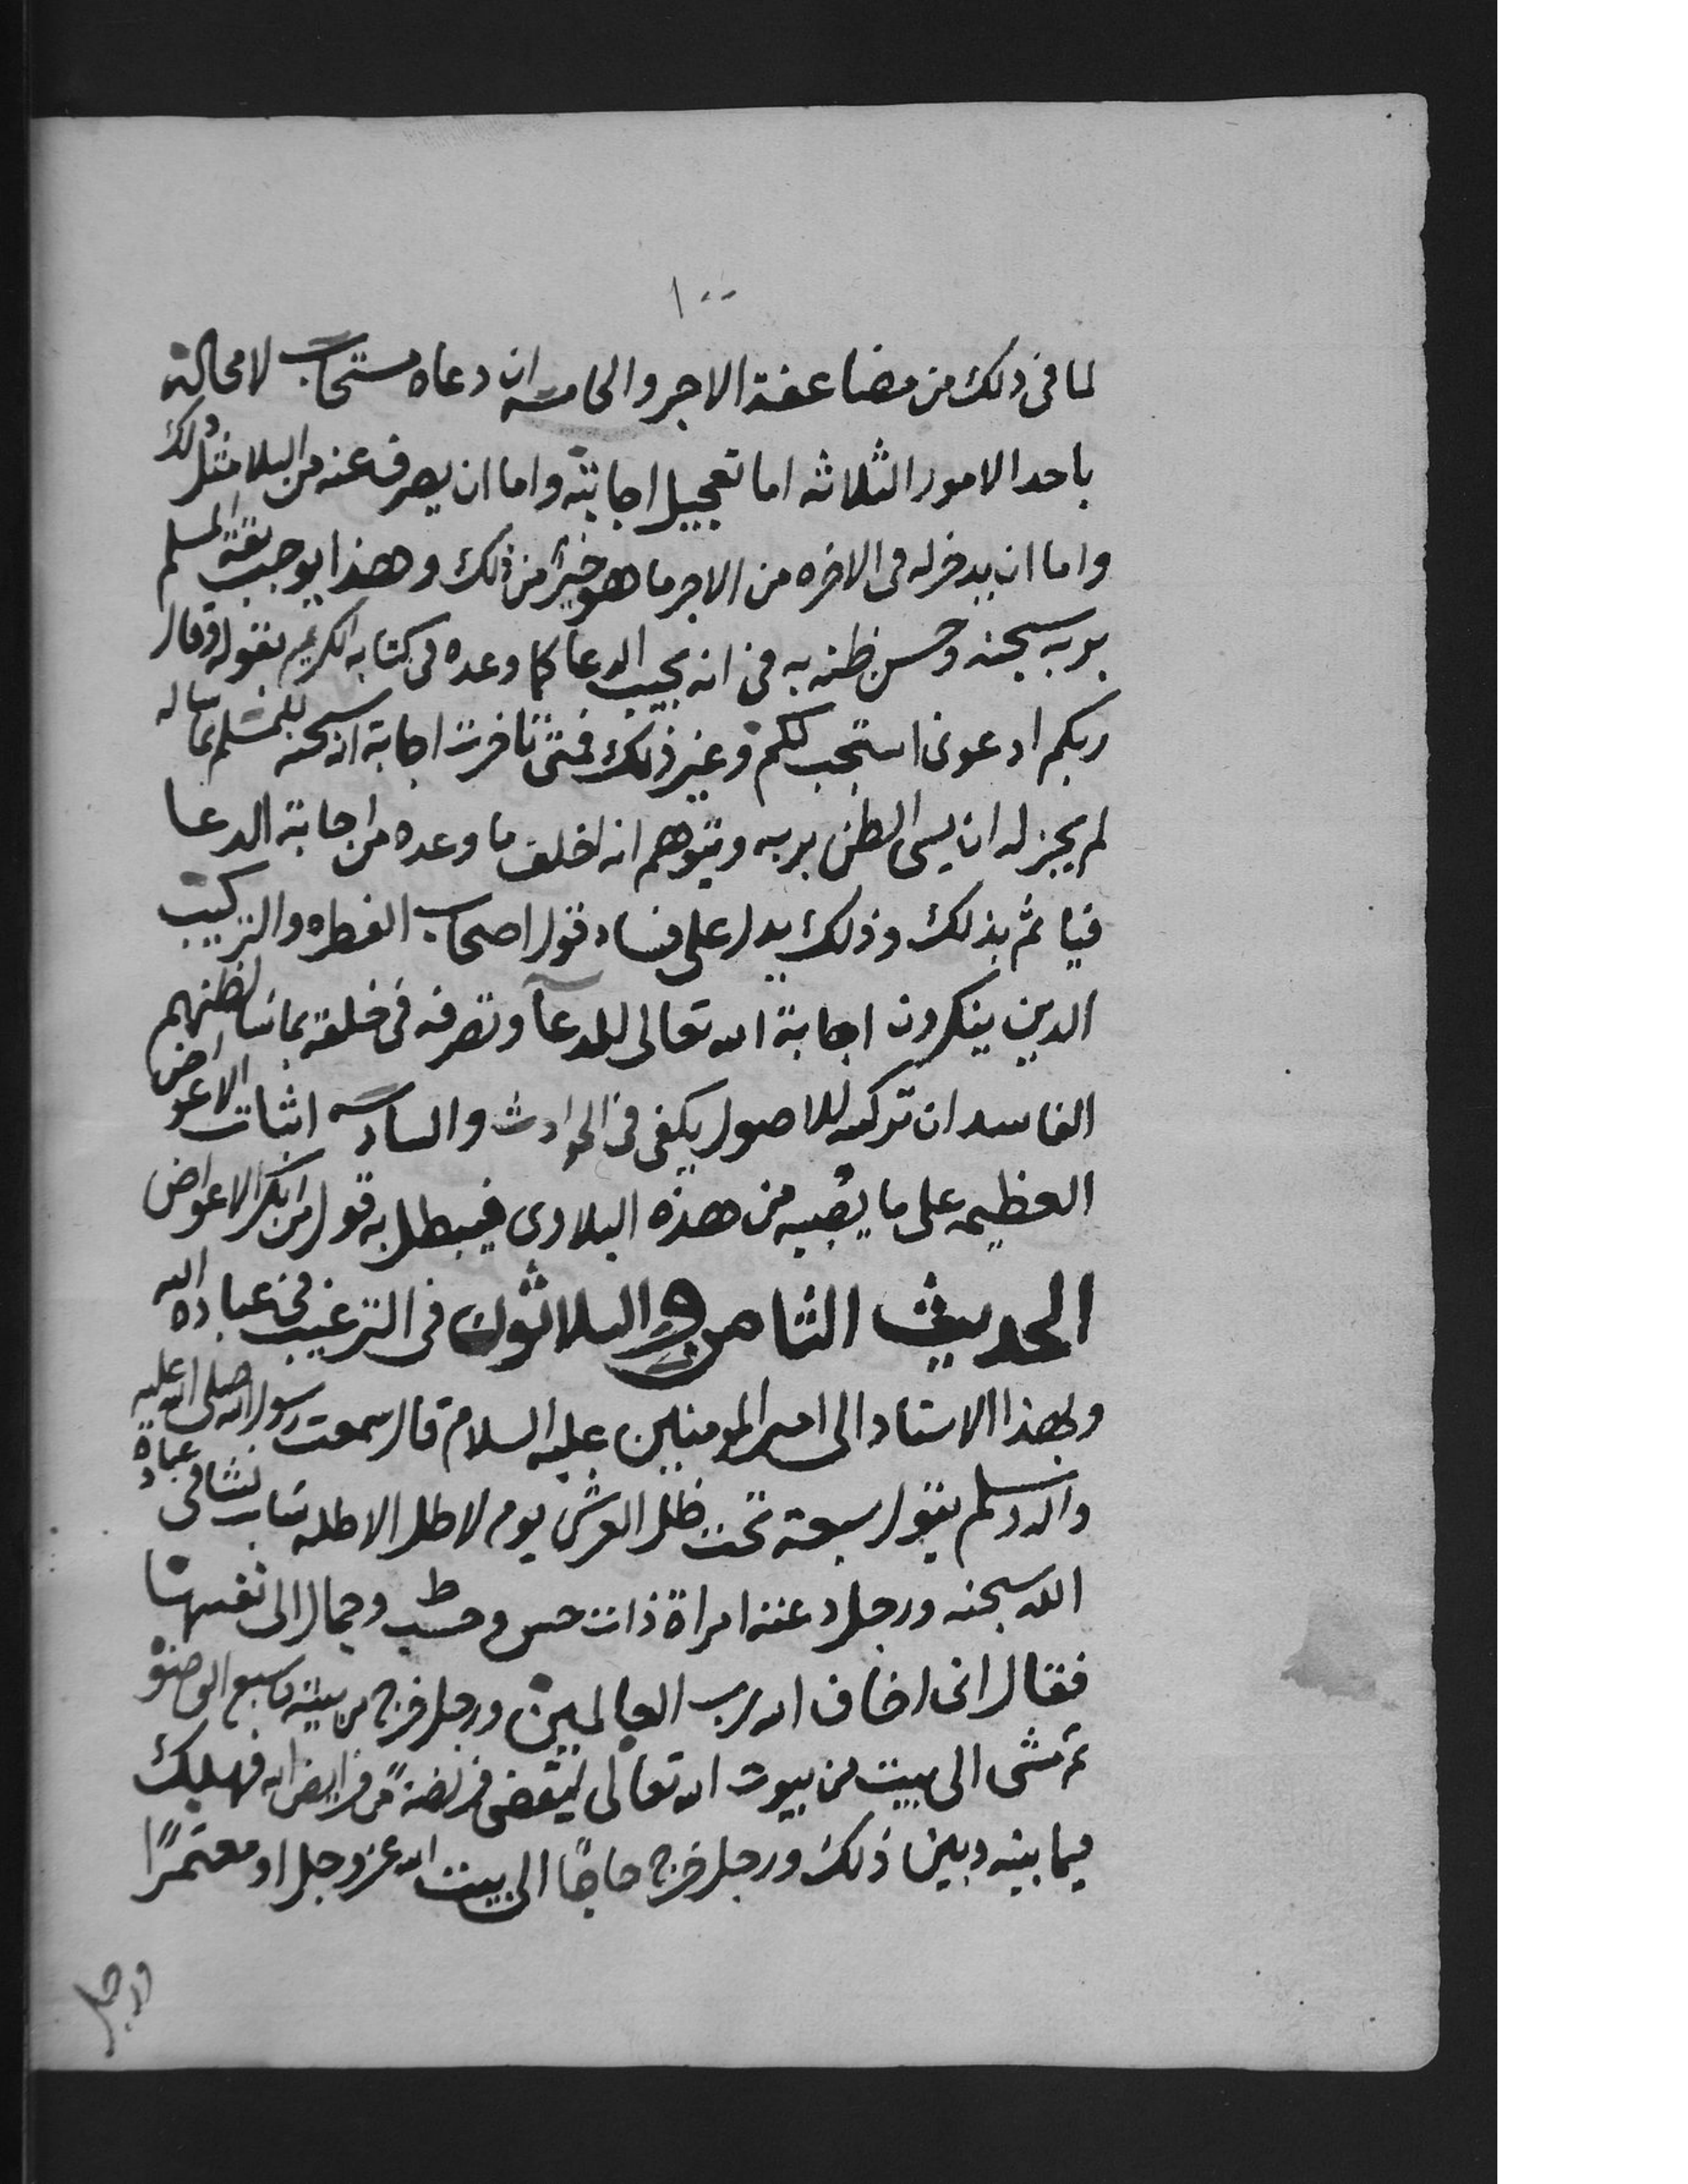 ١٠٠
لما فى ذلك من مضاعفة الاجر والخامسه ان دعاه مستجاب لا محالة
باحد الامور الثلاثه اما تعجيل اجابته واما ان يصرف عنه من البلا مثل ذلك
واما ان يدخر له فى الاخره من الاجر ما هو خير من ذلك وهذا يوجب ثقة المسلم
بربه سبحنه وحسن ظنه به فى انه يجيب الدعا كما وعده فى كتابه الكريم بقوله وقال
ربكم ادعونى استجب لكم وغير ذلك فمتى تاخرت اجابة الله سبحنه للمسلم بما ساله
لم يجز له ان يسى الظن بربه ويتوهم انه اخلف ما وعده من اجابة الدعا
فياثم بذلك وذلك يدل على فساد قول اصحاب الفطره والتركيب
الذين ينكرون اجابة الله تعالى للدعآ وتصرفه فى خلقه بما شا لظنهم
الفاسد ان تركيبه للاصول يكفى فى الحوادث والسادسه اثبات الاعواض
العظيمه على ما يصيبه من هذه البلاوى فيبطل به قول من انكر الاعواض
الحديث الثامن والثلاثون فى الترغيب فى عباده الله
وبهذا الاسناد الى امير المومنين عليه السلام قال سمعت رسول الله صلى الله عليه
واله وسلم يقول سبعة تحت ظل العرش يوم لا ظل الا ظله شاب نشا فى عبادة
الله سبحنه ورجل دعته امراة ذات حسن وحسب وجمال الى نفسها
فقال انى اخاف الله رب العالمين ورجل خرج من بيته فاسبغ الوضو
ثم مشى الى بيت من بيوت الله تعالى ليقضى فريضةً من فرايض الله فهلك
فيما بينه وبين ذلك ورجل خرج حاجًا الى بيت الله عز وجل او معتمرًا
ورجل